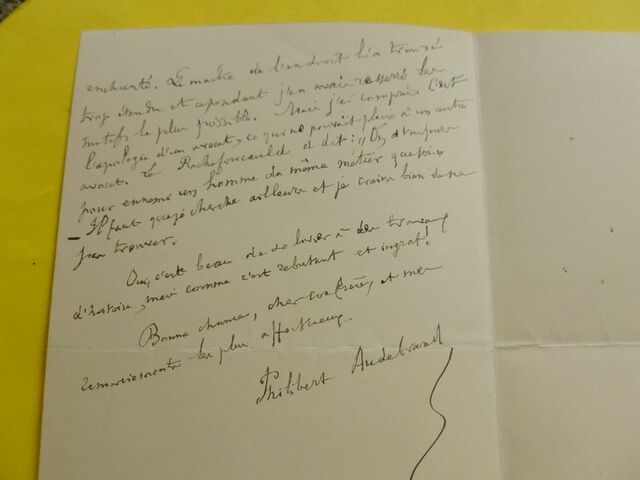 enchanté. Le maître de l'endroit l'a trouvé
trop étendu et cependant j'en avais resserré les
motifs le plus possible. Mais j'ai compris. C'est
l'apologie d'un avocat, ce qui ne pouvait plaire à un autre
avocat. La Rochefoucauld a dit : "On a toujours
pour ennemi un homme du même métier que soi."
— Il faut que je cherche ailleurs et je crains bien de ne
pas trouver.
Oui, c'est beau de se livrer à des travaux
d'histoire, mais comme c'est rebutant et ingrat !
Bonne chance, cher confrère, et mes
remerciements les plus affectueux
Philibert Audebrand